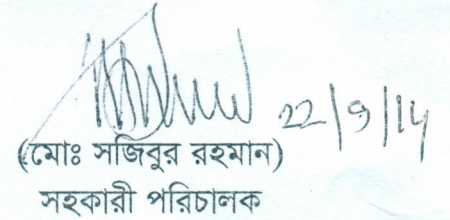 22/9/14
(মোঃ সজিবুর রহমান)
সহকারী পরিচালক